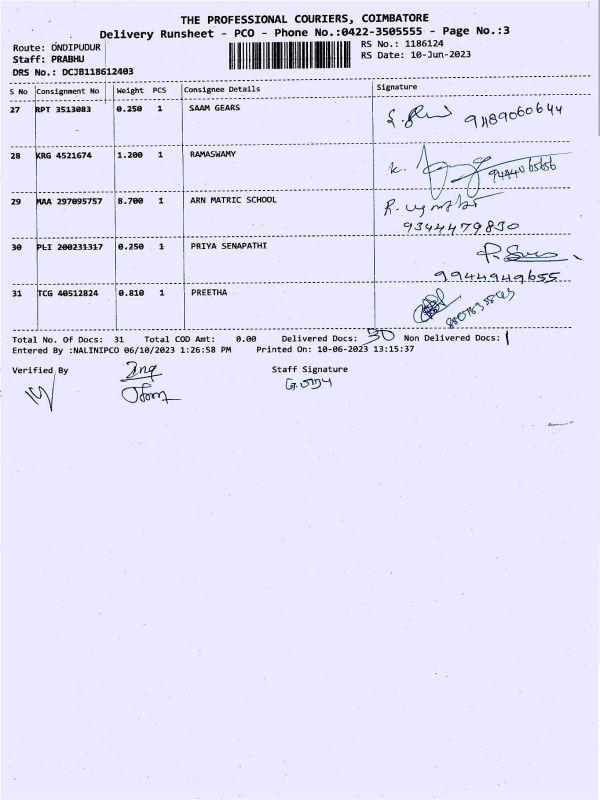 THE PROFESSIONAL COURIERS, COIMBATORE
Delivery Runsheet - PCO - Phone No.:0422-3505555 - Page No.:3
Route: ONDIPUDUR
RS No.: 1186124
Staff: PRABHU
RS Date: 10-Jun-2023
DRS No.: DCJB118612403
S No Consignment No Weight PCS Consignee Details Signature
27 RPT 3513083 0.250 1 SAAM GEARS 9489060644
28 KRG 4521674 1.200 1 RAMASWAMY K. 9444065656
29 MAA 297095757 8.700 1 ARN MATRIC SCHOOL R.
9344479830
30 PLI 200231317 0.250 1 PRIYA SENAPATHI
9944949655
31 TCG 40512824 0.810 1 PREETHA
Total No. Of Docs: 31 Total COD Amt: 0.00 Delivered Docs: 30 Non Delivered Docs: 1
Entered By :NALINIPCO 06/10/2023 1:26:58 PM Printed On: 10-06-2023 13:15:37
Verified By Staff Signature